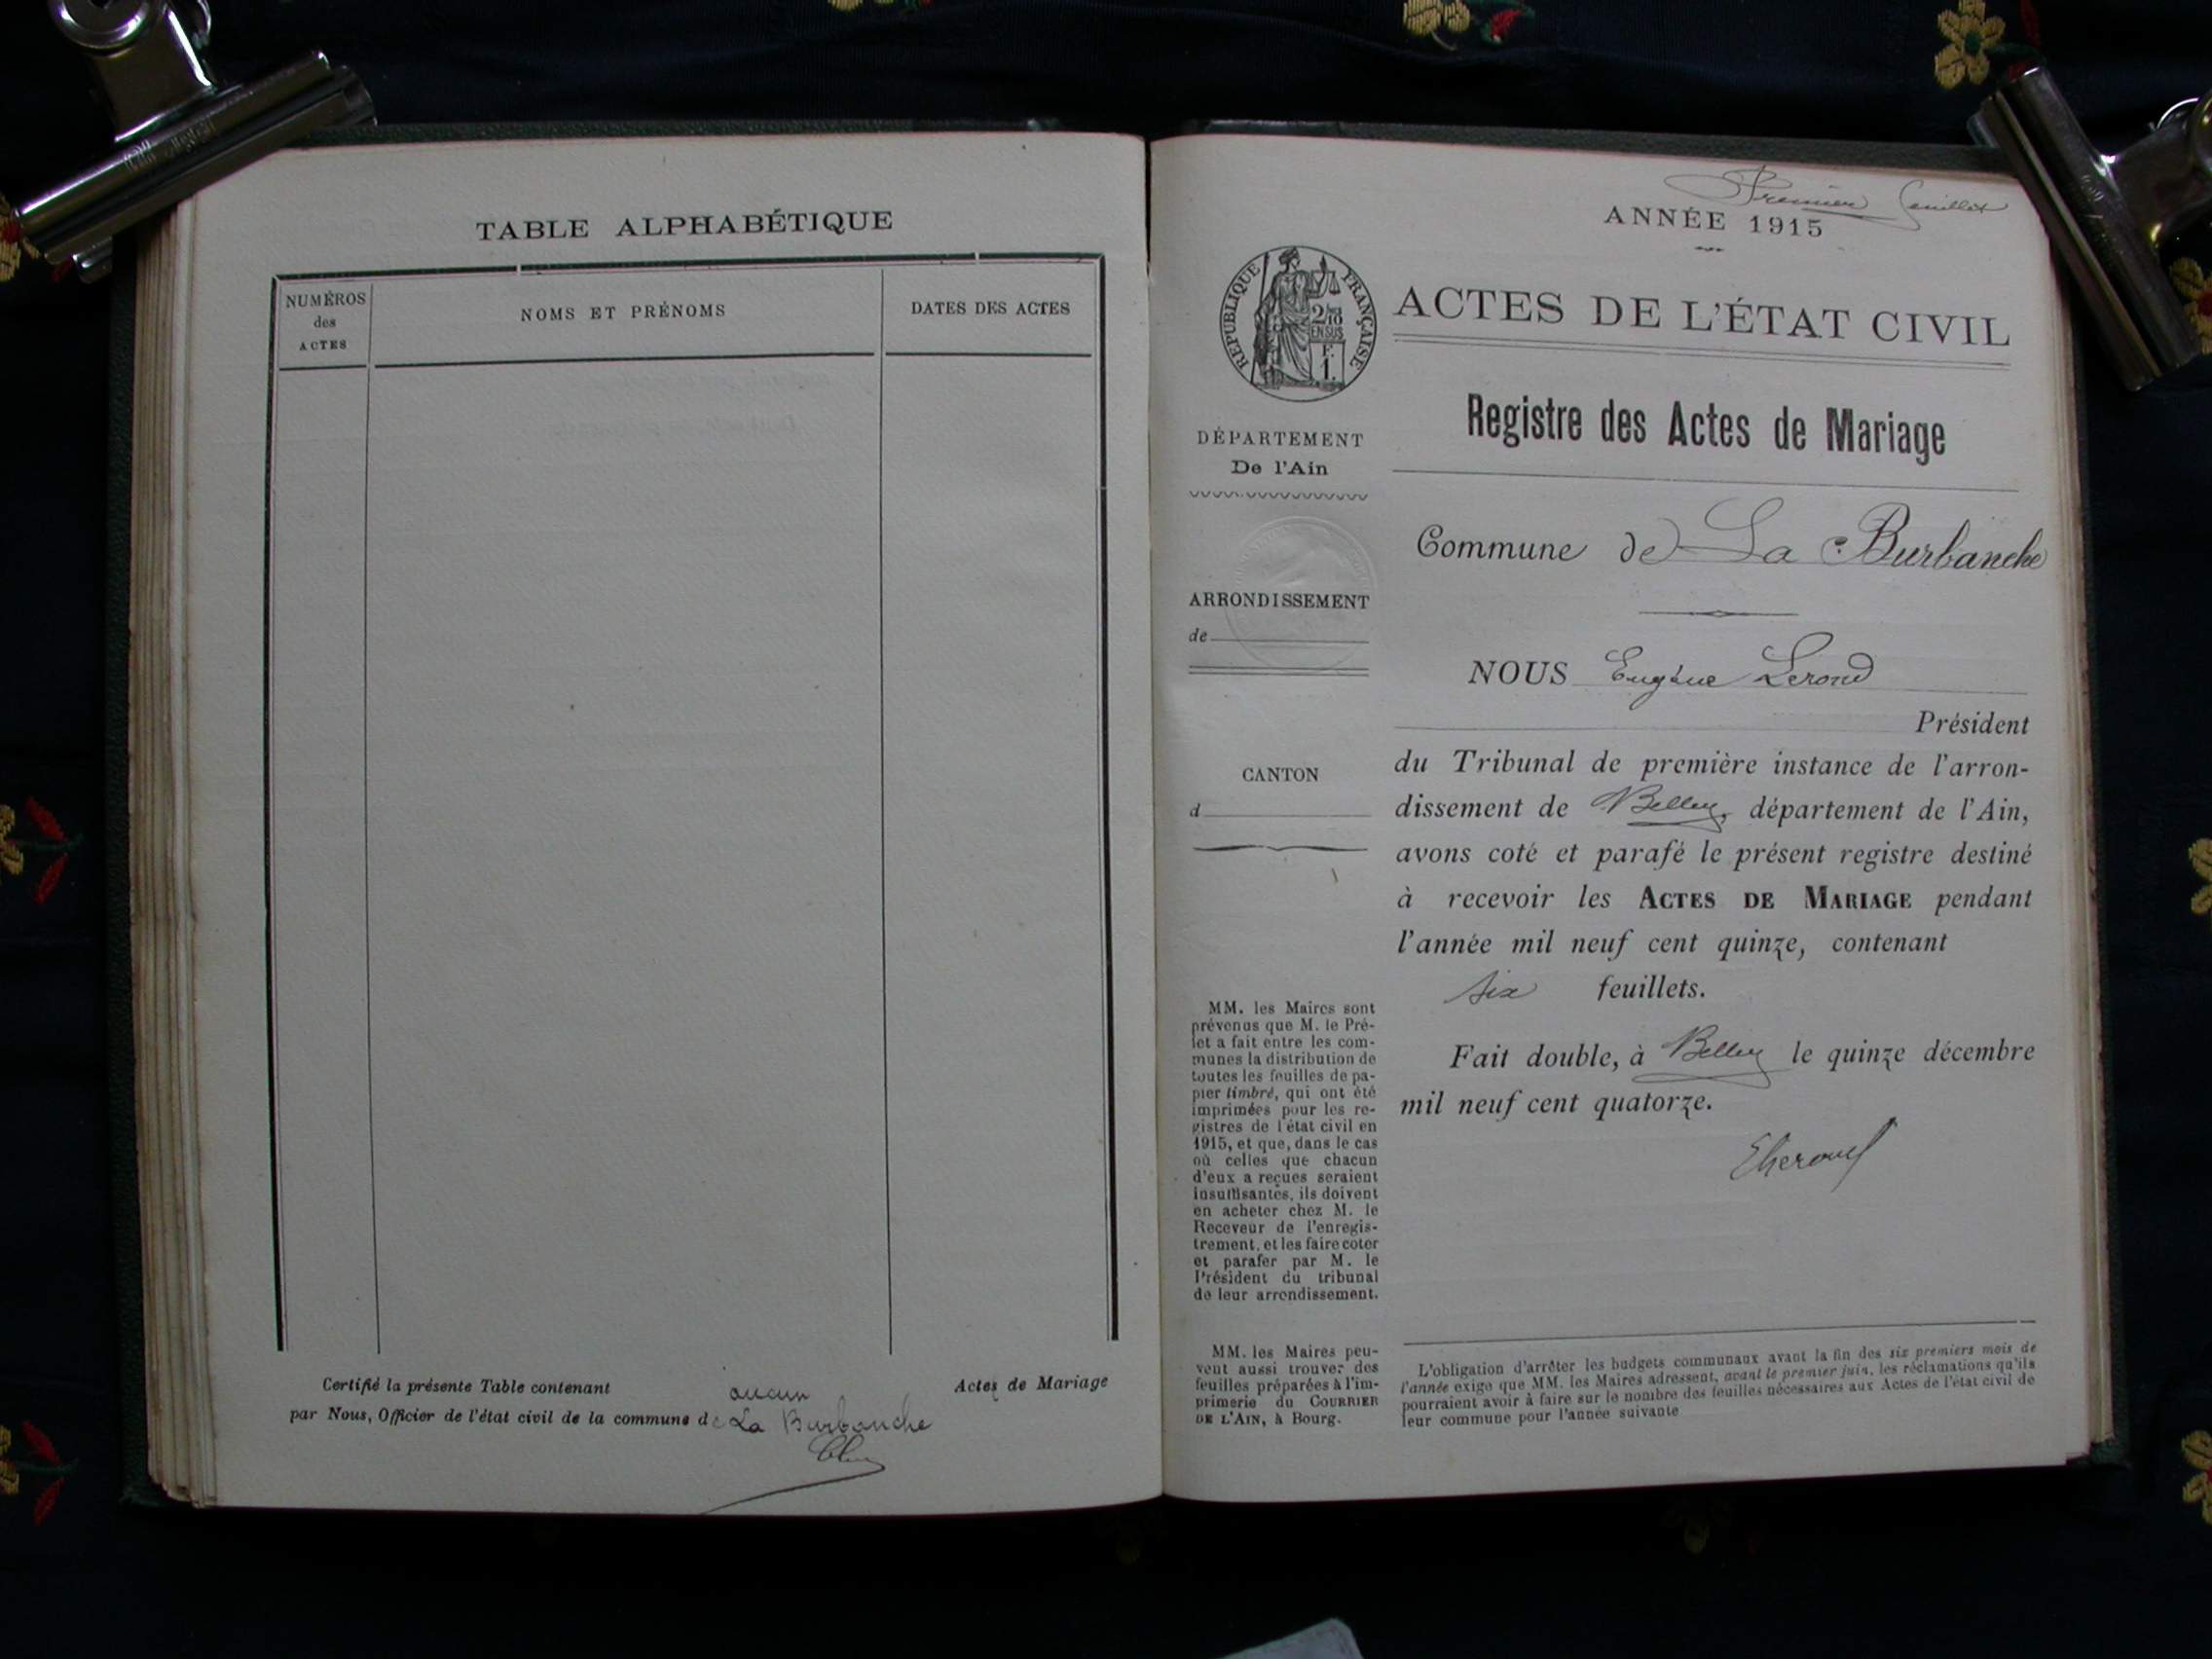 TABLE ALPHABÉTIQUE
NUMÉROS
des
ACTES
NOMS ET PRÉNOMS
DATES DES ACTES
Certifié la présente Table contenant aucun Actes de Mariage
par Nous, Officier de l'état civil de la commune de La Burbanche
Premier feuillet
ANNÉE 1915
RÉPUBLIQUE FRANÇAISE
2/10
EN SUS
F.
1.
ACTES DE L'ÉTAT CIVIL
Registre des Actes de Mariage
DÉPARTEMENT
De l'Ain
Commune de La Burbanche
ARRONDISSEMENT
de
NOUS Eugène Lerond
Président
CANTON
d
du Tribunal de première instance de l'arron-
dissement de Belley, département de l'Ain,
avons coté et parafé le présent registre destiné
à recevoir les ACTES DE MARIAGE pendant
l'année mil neuf cent quinze, contenant
six feuillets.
Fait double, à Belley le quinze décembre
mil neuf cent quatorze.
MM. les Maires sont
prévenus que M. le Pré-
fet a fait entre les com-
munes la distribution de
toutes les feuilles de pa-
pier timbré, qui ont été
imprimées pour les re-
gistres de l'état civil en
1915, et que, dans le cas
où celles que chacun
d'eux a reçues seraient
insuffisantes, ils doivent
en acheter chez M. le
Receveur de l'enregis-
trement, et les faire coter
et parafer par M. le
Président du tribunal
de leur arrondissement.
MM. les Maires peu-
vent aussi trouver des
feuilles préparées à l'im-
primerie du COURRIER
DE L'AIN, à Bourg.
L'obligation d'arrêter les budgets communaux avant la fin des six premiers mois de
l'année exige que MM. les Maires adressent, avant le premier juin, les réclamations qu'ils
pourraient avoir à faire sur le nombre des feuilles nécessaires aux Actes de l'état civil de
leur commune pour l'année suivante